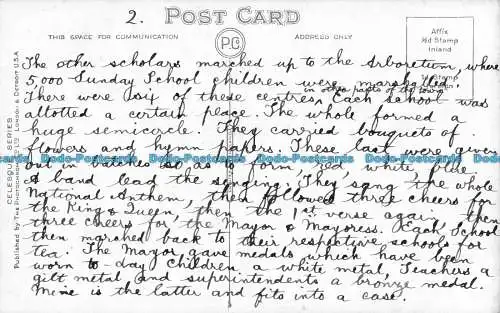 2.
POST CARD
THIS SPACE FOR COMMUNICATION
ADDRESS ONLY
Affix
½d Stamp
Inland
1d Stamp
PC
CELESQUE SERIES
Published by The Photochrom Co. Ltd. London & Detroit U.S.A.
The other scholars marched up to the Arboretum, where
5,000 Sunday School children were marshalled.
in other parts of the town
There were six of these centres. Each school was
allotted a certain place. The whole formed a
huge semicircle. They carried bouquets of
flowers and hymn papers. These last were given
out in batches so as to form red, white, blue.
A band lead the singing. They sang the whole
National Anthem, then followed three cheers for
the King & Queen, then the 1st verse again, then
three cheers for the Mayor & Mayoress. Each School
then marched back to their respective schools for
tea. The Mayor gave medals which have been
worn to-day. Children, a white metal, Teachers a
gilt metal and superintendents a bronze medal.
Mine is the latter and fits into a case.